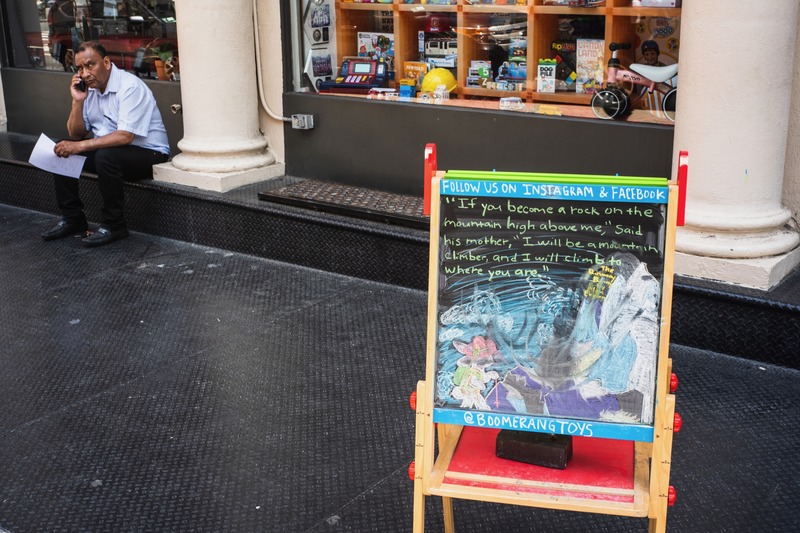 FOLLOW US ON INSTAGRAM & FACEBOOK
"If you become a rock on the
mountain high above me," Said
his mother, "I will be a mountain
climber, and I will climb to
where you are."
The
Runaway
Bunny
@BOOMERANGTOYS